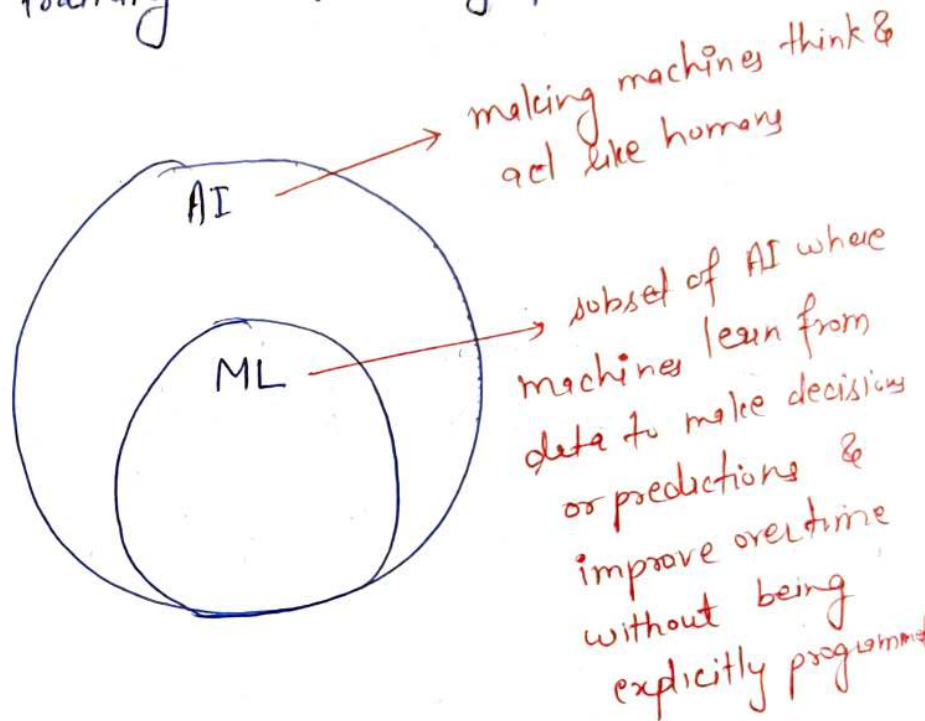 AI
making machines think &
act like humans
ML
subset of AI where
machines learn from
data to make decisions
or predictions &
improve overtime
without being
explicitly